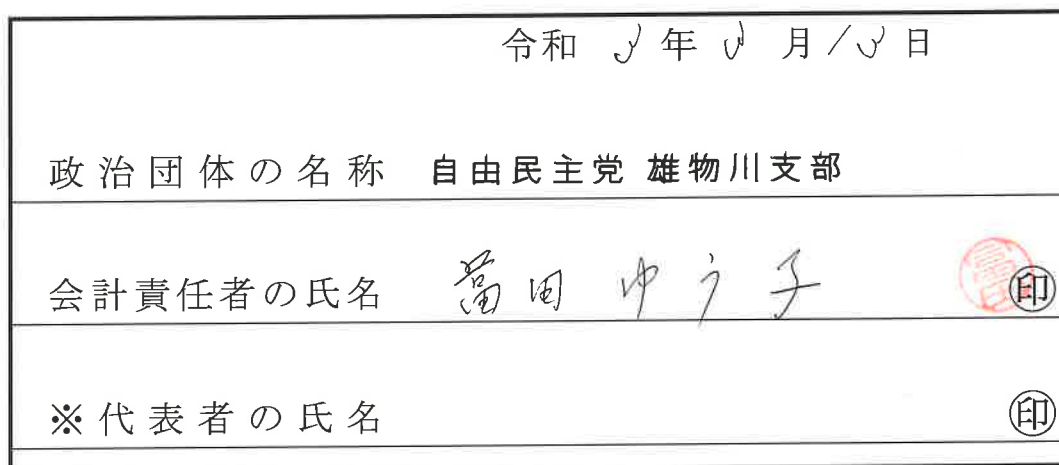 令和 3年 3月13日
政治団体の名称 自由民主党 雄物川支部
会計責任者の氏名 冨田ゆう子 ㊞
※代表者の氏名 ㊞